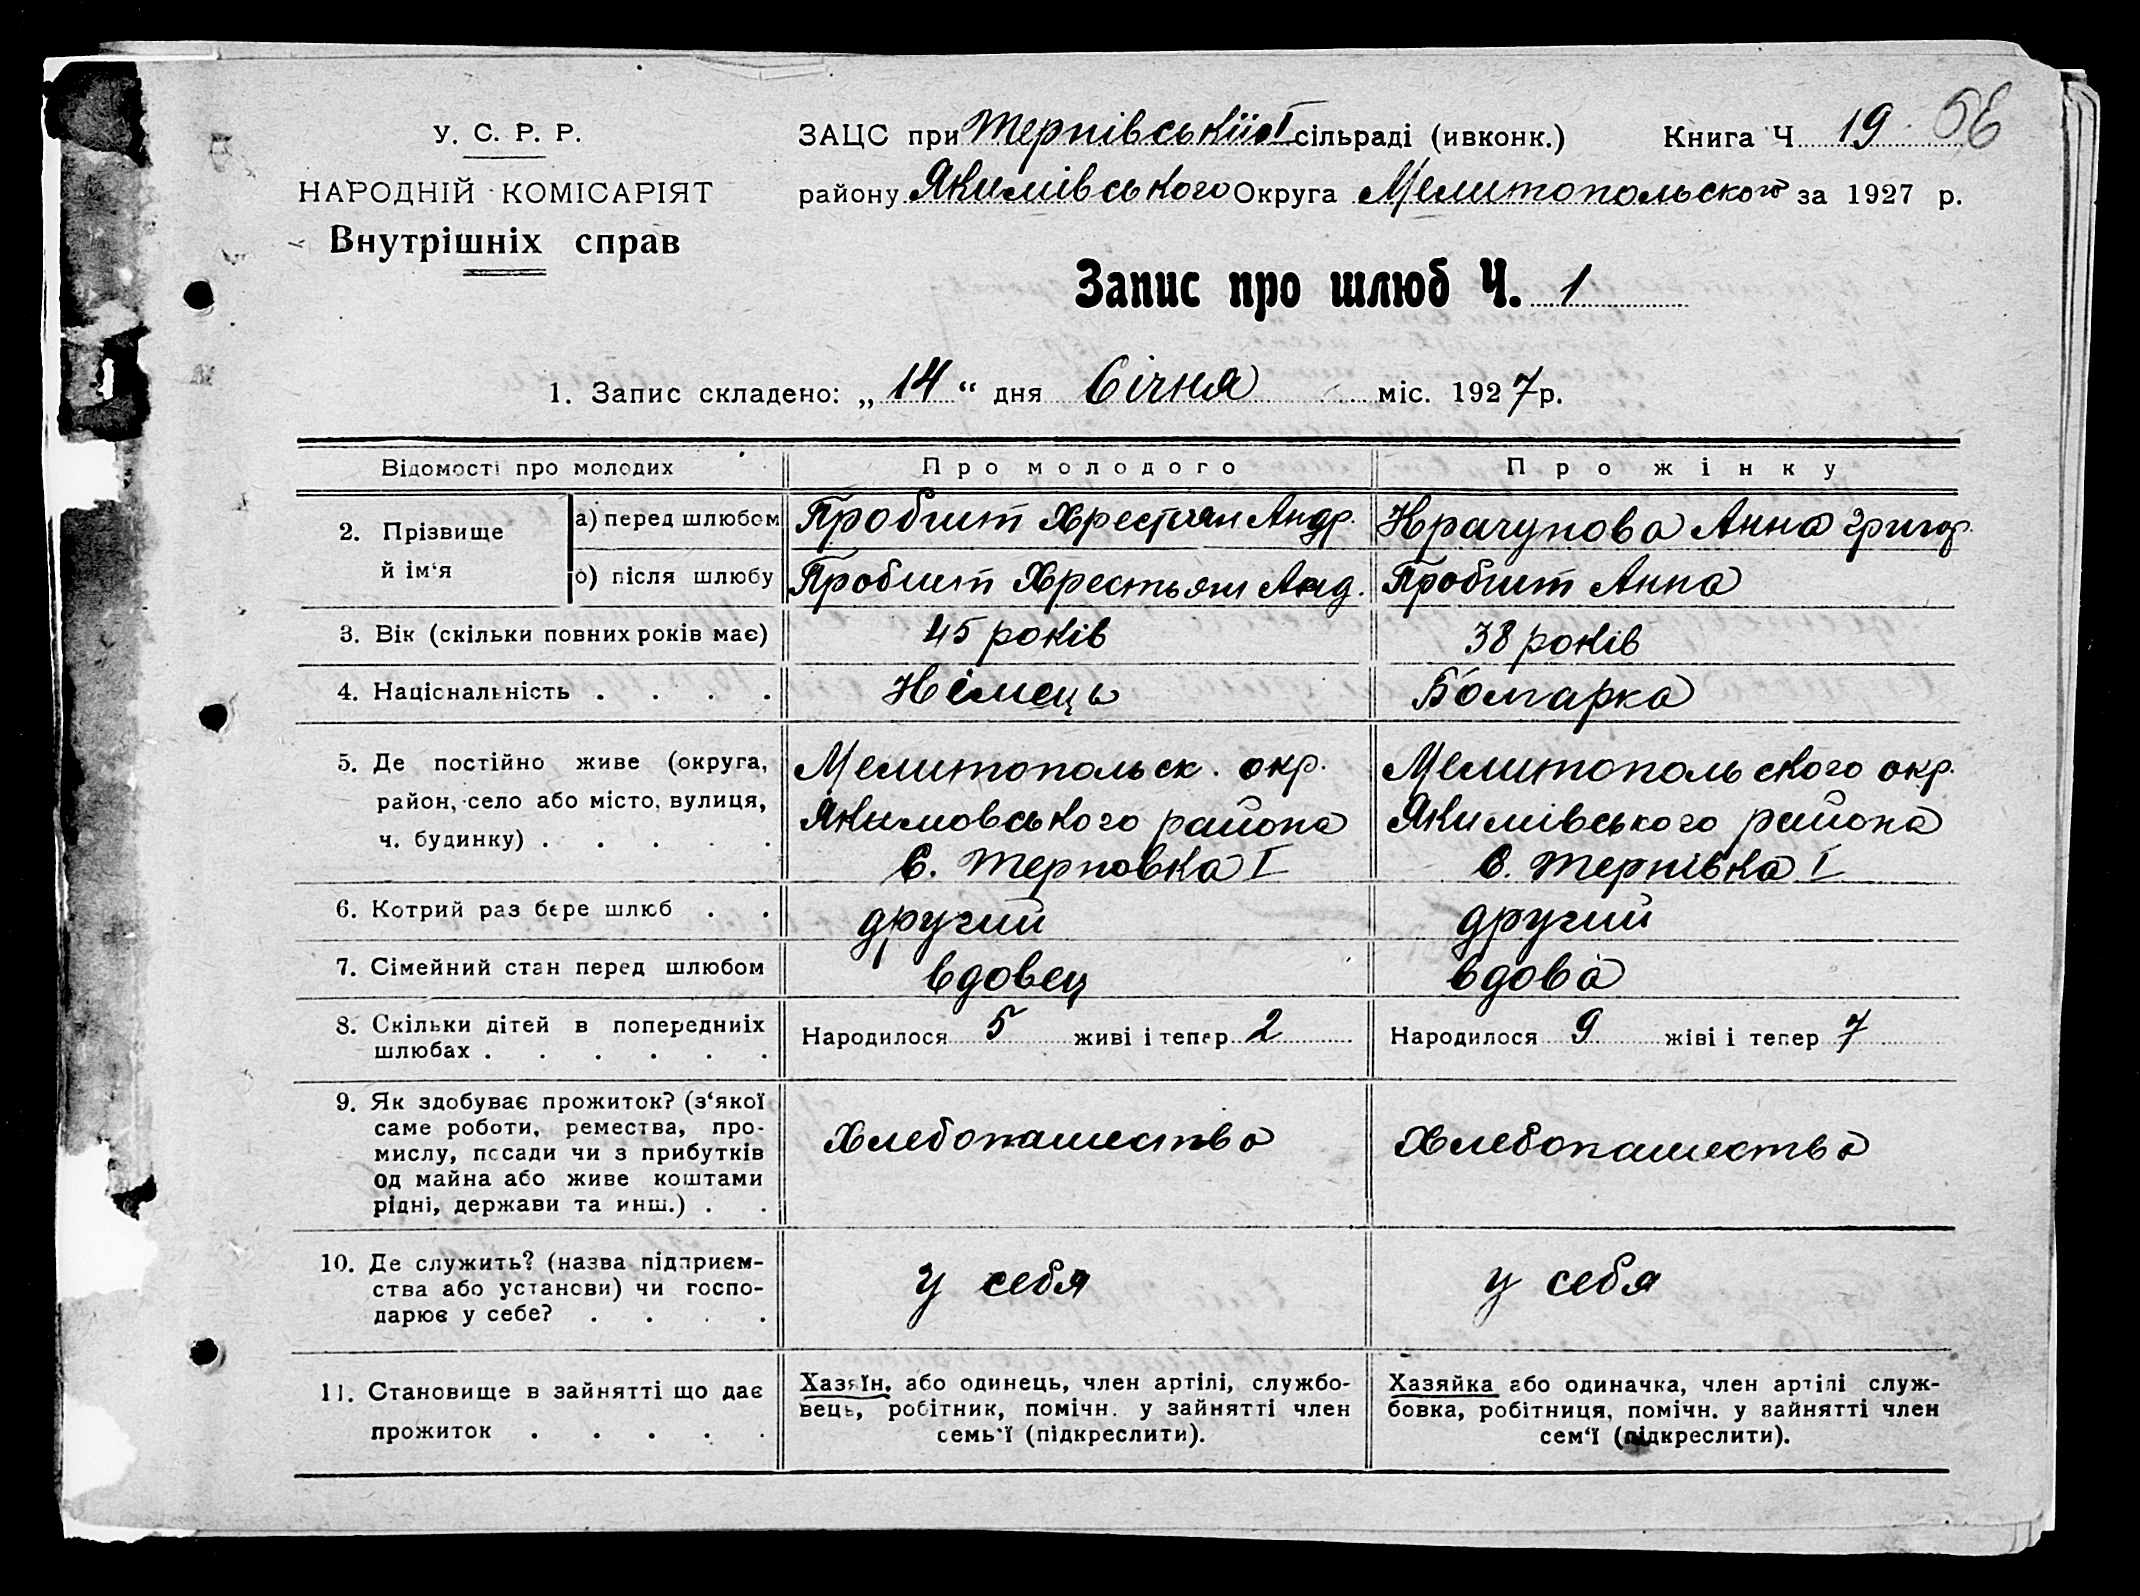 У. С. Р. Р.
НАРОДНІЙ КОМІСАРІЯТ
Внутрішніх справ
ЗАЦС при Терпівській I сільраді (ивконк.) Книга Ч 19
району Якимівського Округа Мелитопольского за 1927 р.
Запис про шлюб Ч. 1
1. Запис складено: „ 14 “ дня Січня міс. 1927 р.
Відомості про молодих
Про молодого
Про жінку
2. Прізвище й ім‘я
а) перед шлюбом
Пробшт Хрестян Андр.
Крачунова Анна Григор.
б) після шлюбу
Пробшт Хрестьян Анд.
Пробшт Анна
3. Вік (скільки повних років має)
45 років
38 років
4. Національність . . . .
Німець
Болгарка
5. Де постійно живе (округа,
район, село або місто, вулиця,
ч. будинку) . . . . .
Мелитопольск. окр.
Якимовського района
с. Терновка I
Мелитопольского окр.
Якимівського района
с. Тернівка I
6. Котрий раз бере шлюб . .
другий
другий
7. Сімейний стан перед шлюбом
вдовец
вдова
8. Скільки дітей в попередниіх
шлюбах . . . . . .
Народилося 5 живі і тепер 2
Народилося 9 жіві і тепер 7
9. Як здобуває прожиток? (з‘якої
саме роботи, ремества, про-
мислу, посади чи з прибутків
од майна або живе коштами
рідні, держави та инш.) . .
Хлебопашество
Хлебопашество
10. Де служить? (назва підприєм-
ства або установи) чи госпо-
дарює у себе? . . . .
у себя
у себя
11. Становище в зайнятті що дає
прожиток . . . . .
Хазяїн, або одинець, член артілі, службо-
вець, робітник, помічн. у зайнятті член
семь‘ї (підкреслити).
Хазяйка або одиначка, член артілі служ-
бовка, робітниця, помічн. у зайнятті член
сем‘ї (підкреслити).